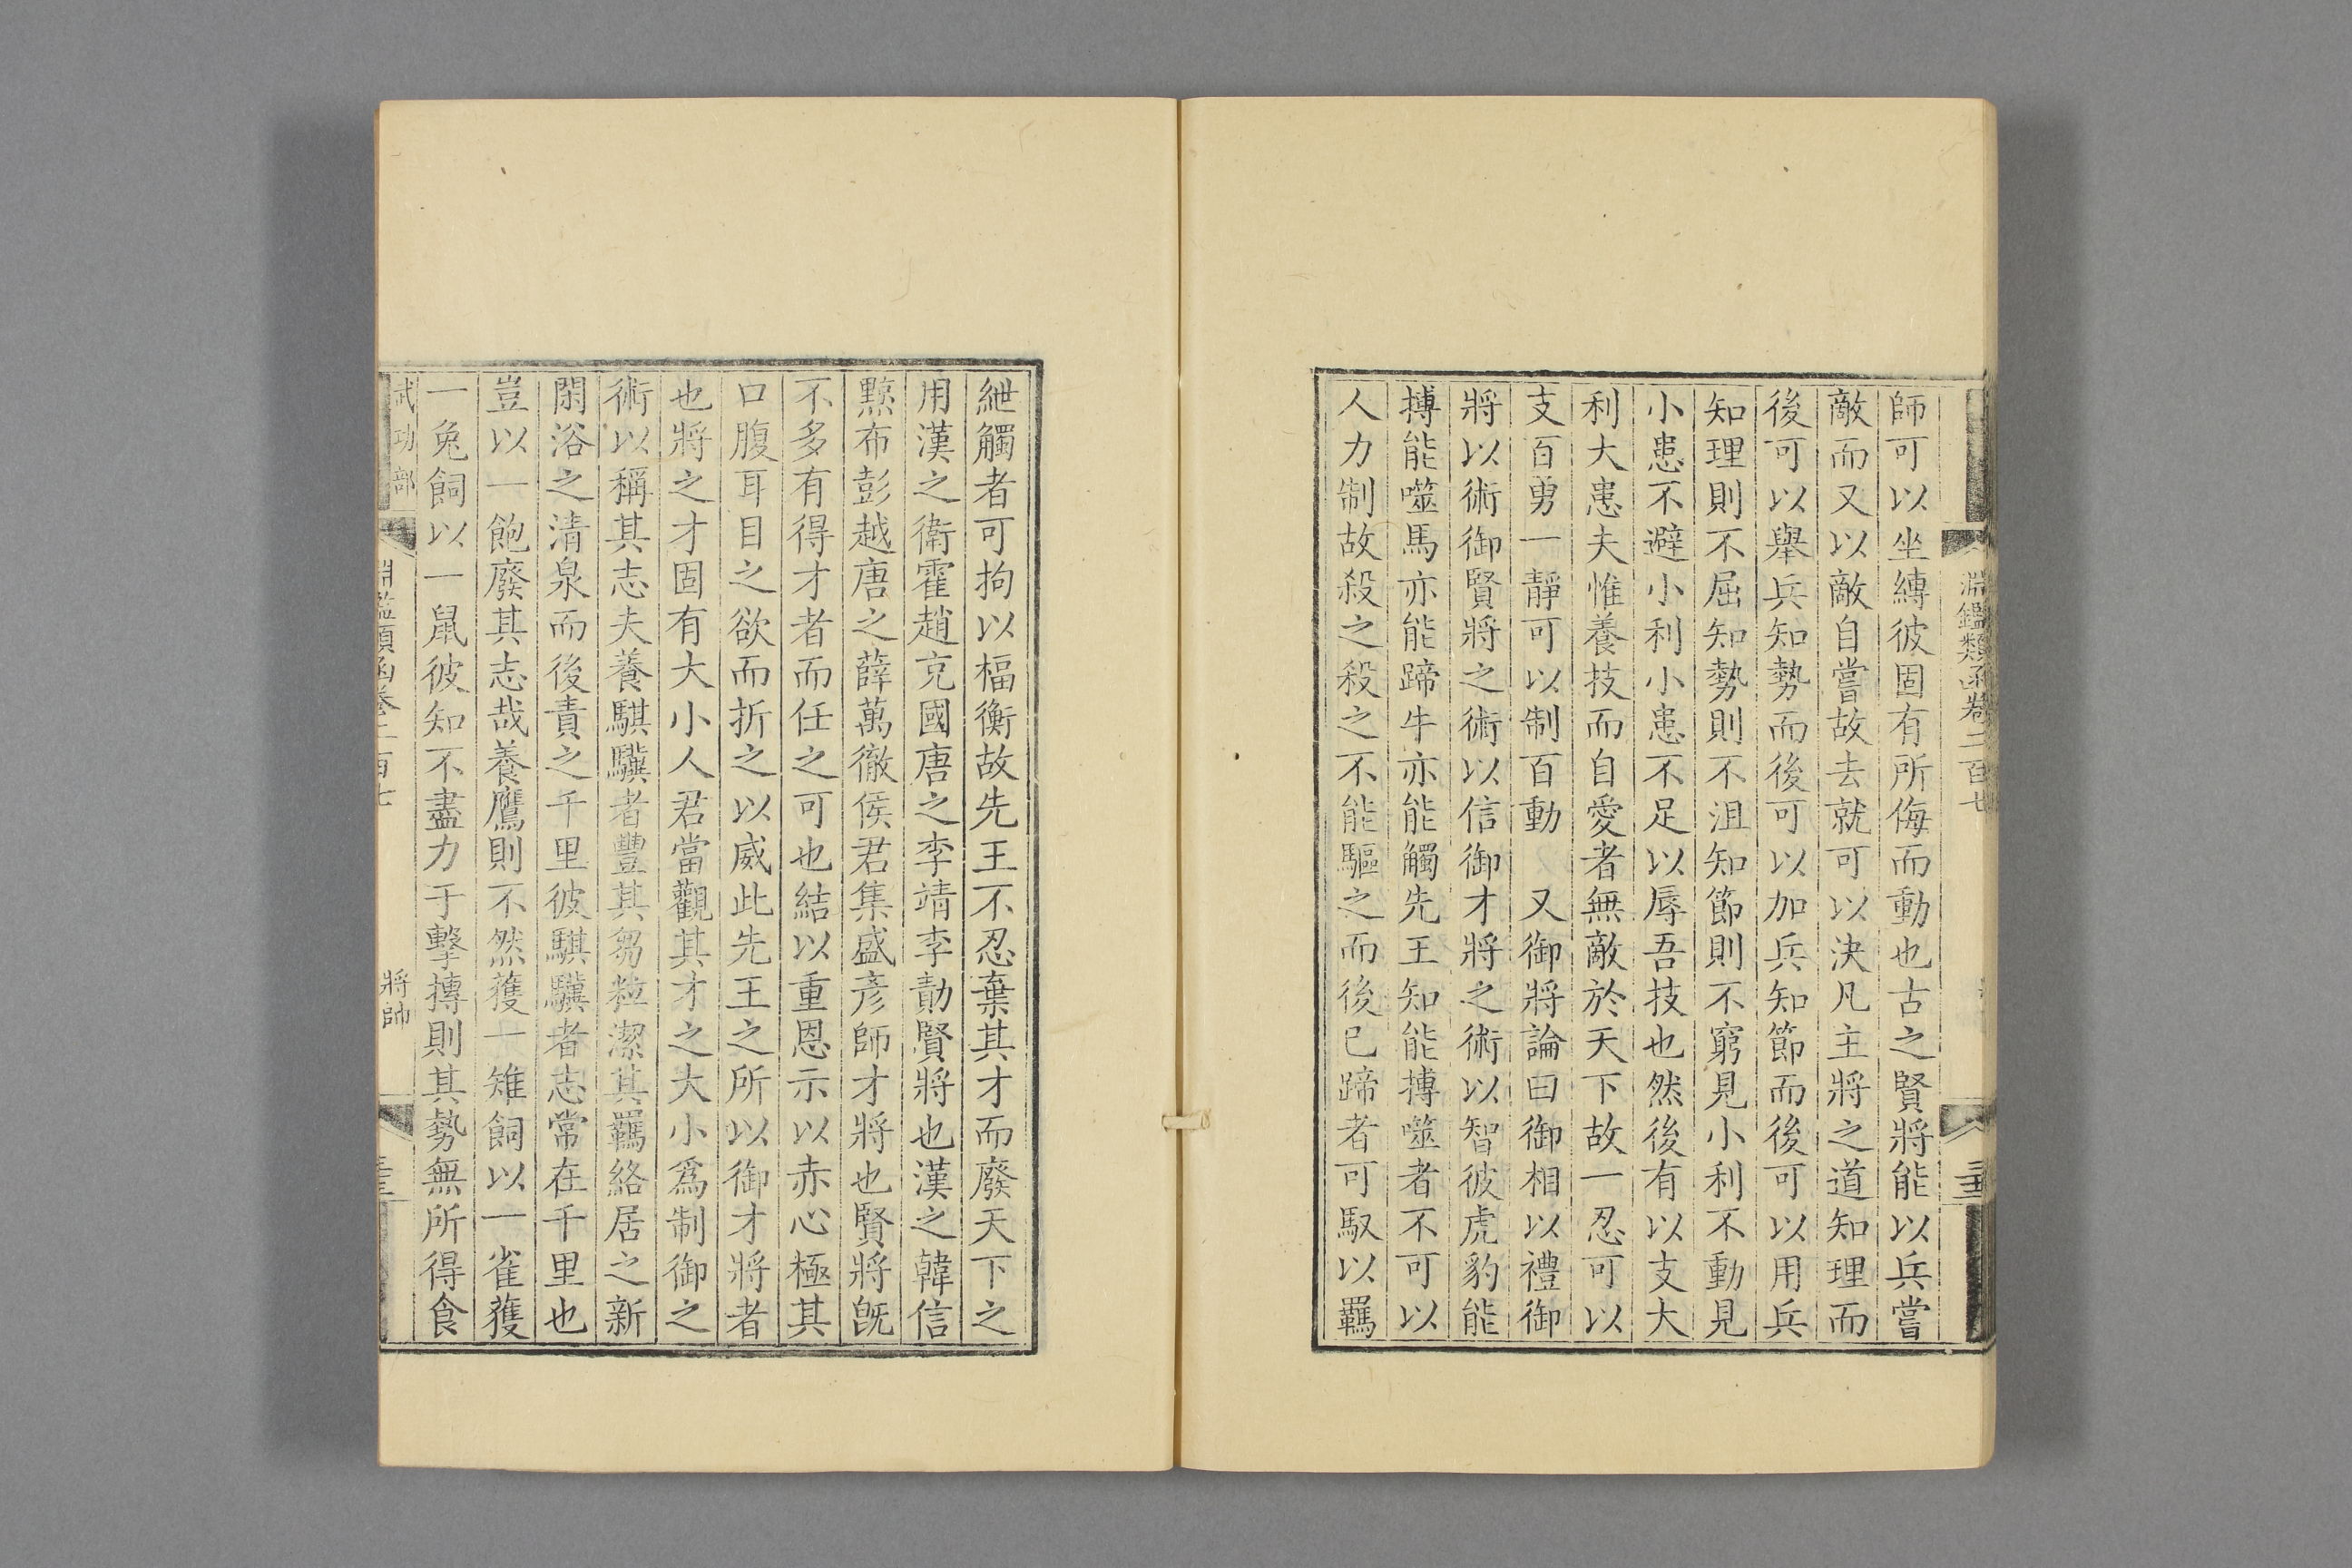 淵鑑類函卷二百七
師可以坐縛彼固有所侮而動也古之賢將能以兵嘗
敵而又以敵自嘗故去就可以決凡主將之道知理而
後可以舉兵知勢而後可以加兵知節而後可以用兵
知理則不屈知勢則不沮知節則不窮見小利不動見
小患不避小利小患不足以辱吾技也然後有以支大
利大患夫惟養技而自愛者無敵於天下故一忍可以
支百勇一靜可以制百動 又御將論曰御相以禮御
將以術御賢將之術以信御才將之術以智彼虎豹能
搏能噬馬亦能蹄牛亦能觸先王知能搏噬者不可以
人力制故殺之殺之不能驅之而後已蹄者可馭以羈
紲觸者可拘以楅衡故先王不忍棄其才而廢天下之
用漢之衛霍趙充國唐之李靖李勣賢將也漢之韓信
黥布彭越唐之薛萬徹侯君集盛彥師才將也賢將旣
不多有得才者而任之可也結以重恩示以赤心極其
口腹耳目之欲而折之以威此先王之所以御才將者
也將之才固有大小人君當觀其才之大小爲制御之
術以稱其志夫養騏驥者豐其芻粒潔其羈絡居之新
閑浴之清泉而後責之千里彼騏驥者志常在千里也
豈以一飽廢其志哉養鷹則不然獲一雉飼以一雀獲
一兔飼以一鼠彼知不盡力于擊搏則其勢無所得食
武功部 淵鑑類函卷二百七 將帥